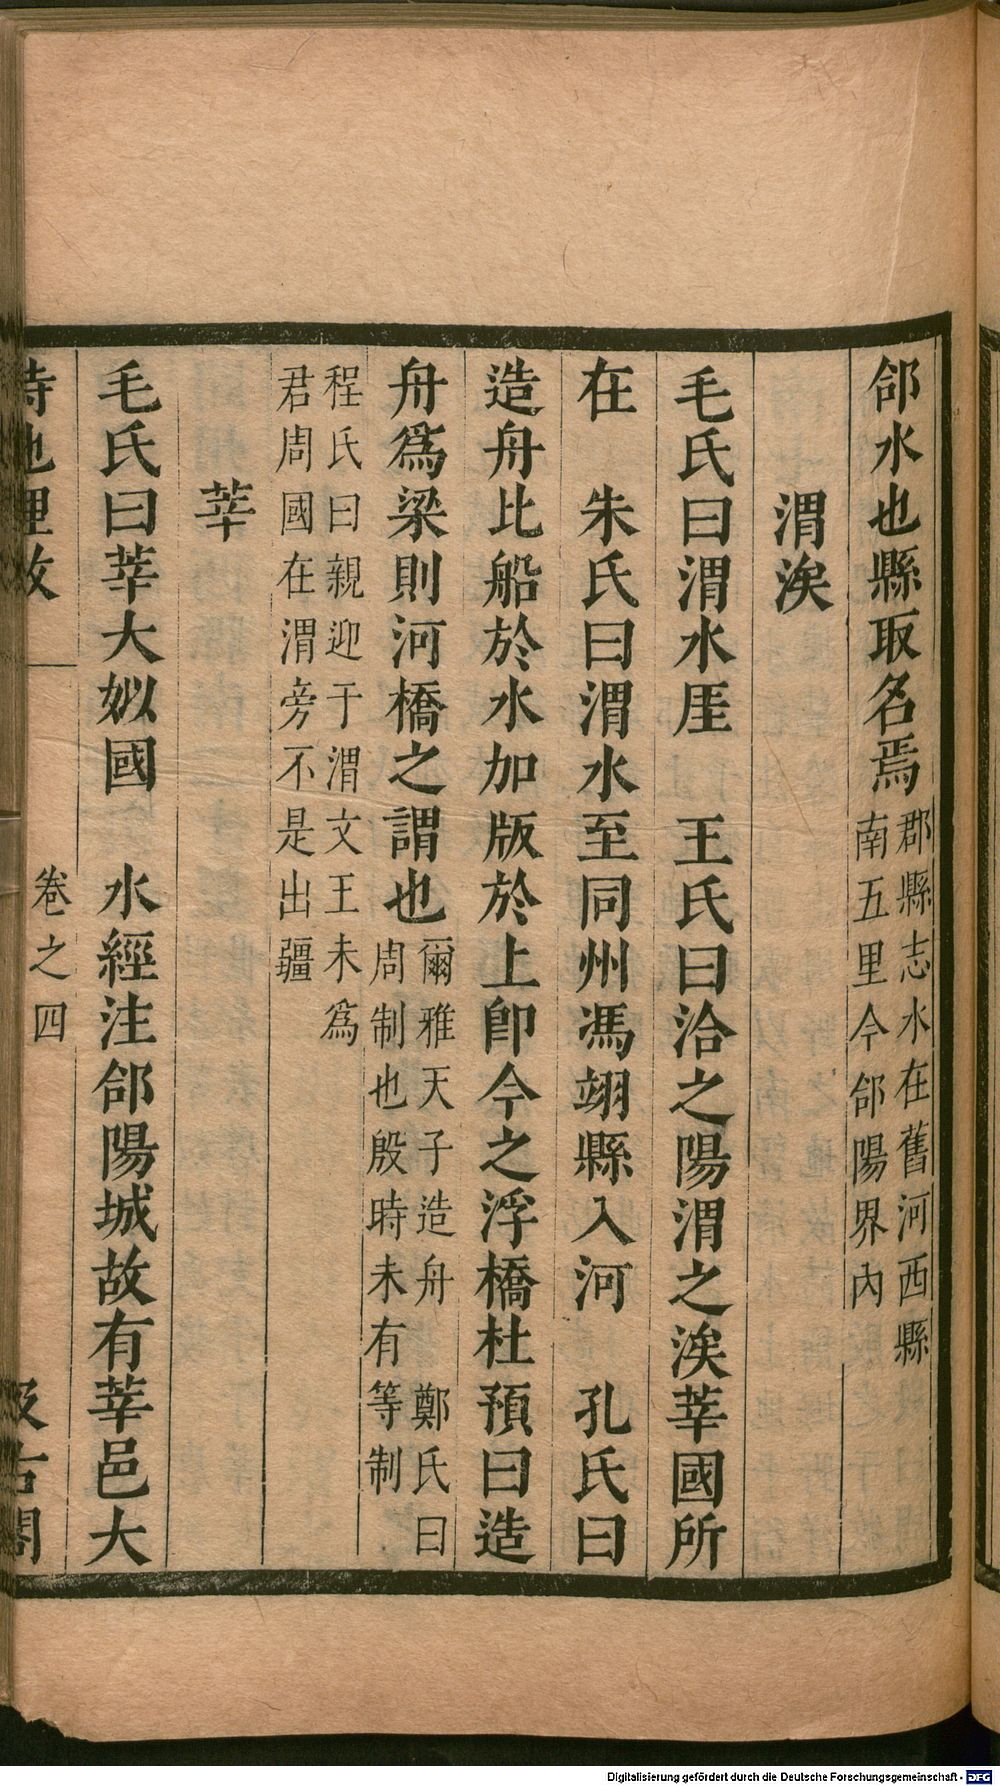 郃水也縣取名焉郡縣志水在舊河西縣
南五里今郃陽界內
渭涘
毛氏曰渭水厓　王氏曰洽之陽渭之涘莘國所
在　朱氏曰渭水至同州馮翊縣入河　孔氏曰
造舟比船於水加版於上卽今之浮橋杜預曰造
舟爲梁則河橋之謂也爾雅天子造舟　鄭氏曰
周制也殷時未有等制
程氏曰親迎于渭文王未爲
君周國在渭旁不是出疆
莘
毛氏曰莘大姒國　水經注郃陽城故有莘邑大
詩地理攷　卷之四　汲古閣
Digitalisierung gefördert durch die Deutsche Forschungsgemeinschaft - DFG